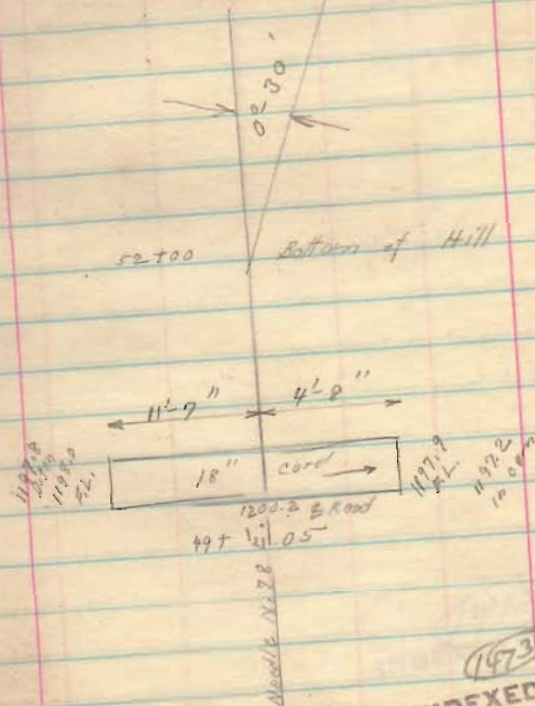 0° 30'
52+00 Bottom of Hill
11'-7" 4'-8"
1197.8
1198.0
F.L.
18" Cord
1197.9
F.L.
1197.2
1200.2 ℄ Road
49+
.05
Needle
1473
INDEXED